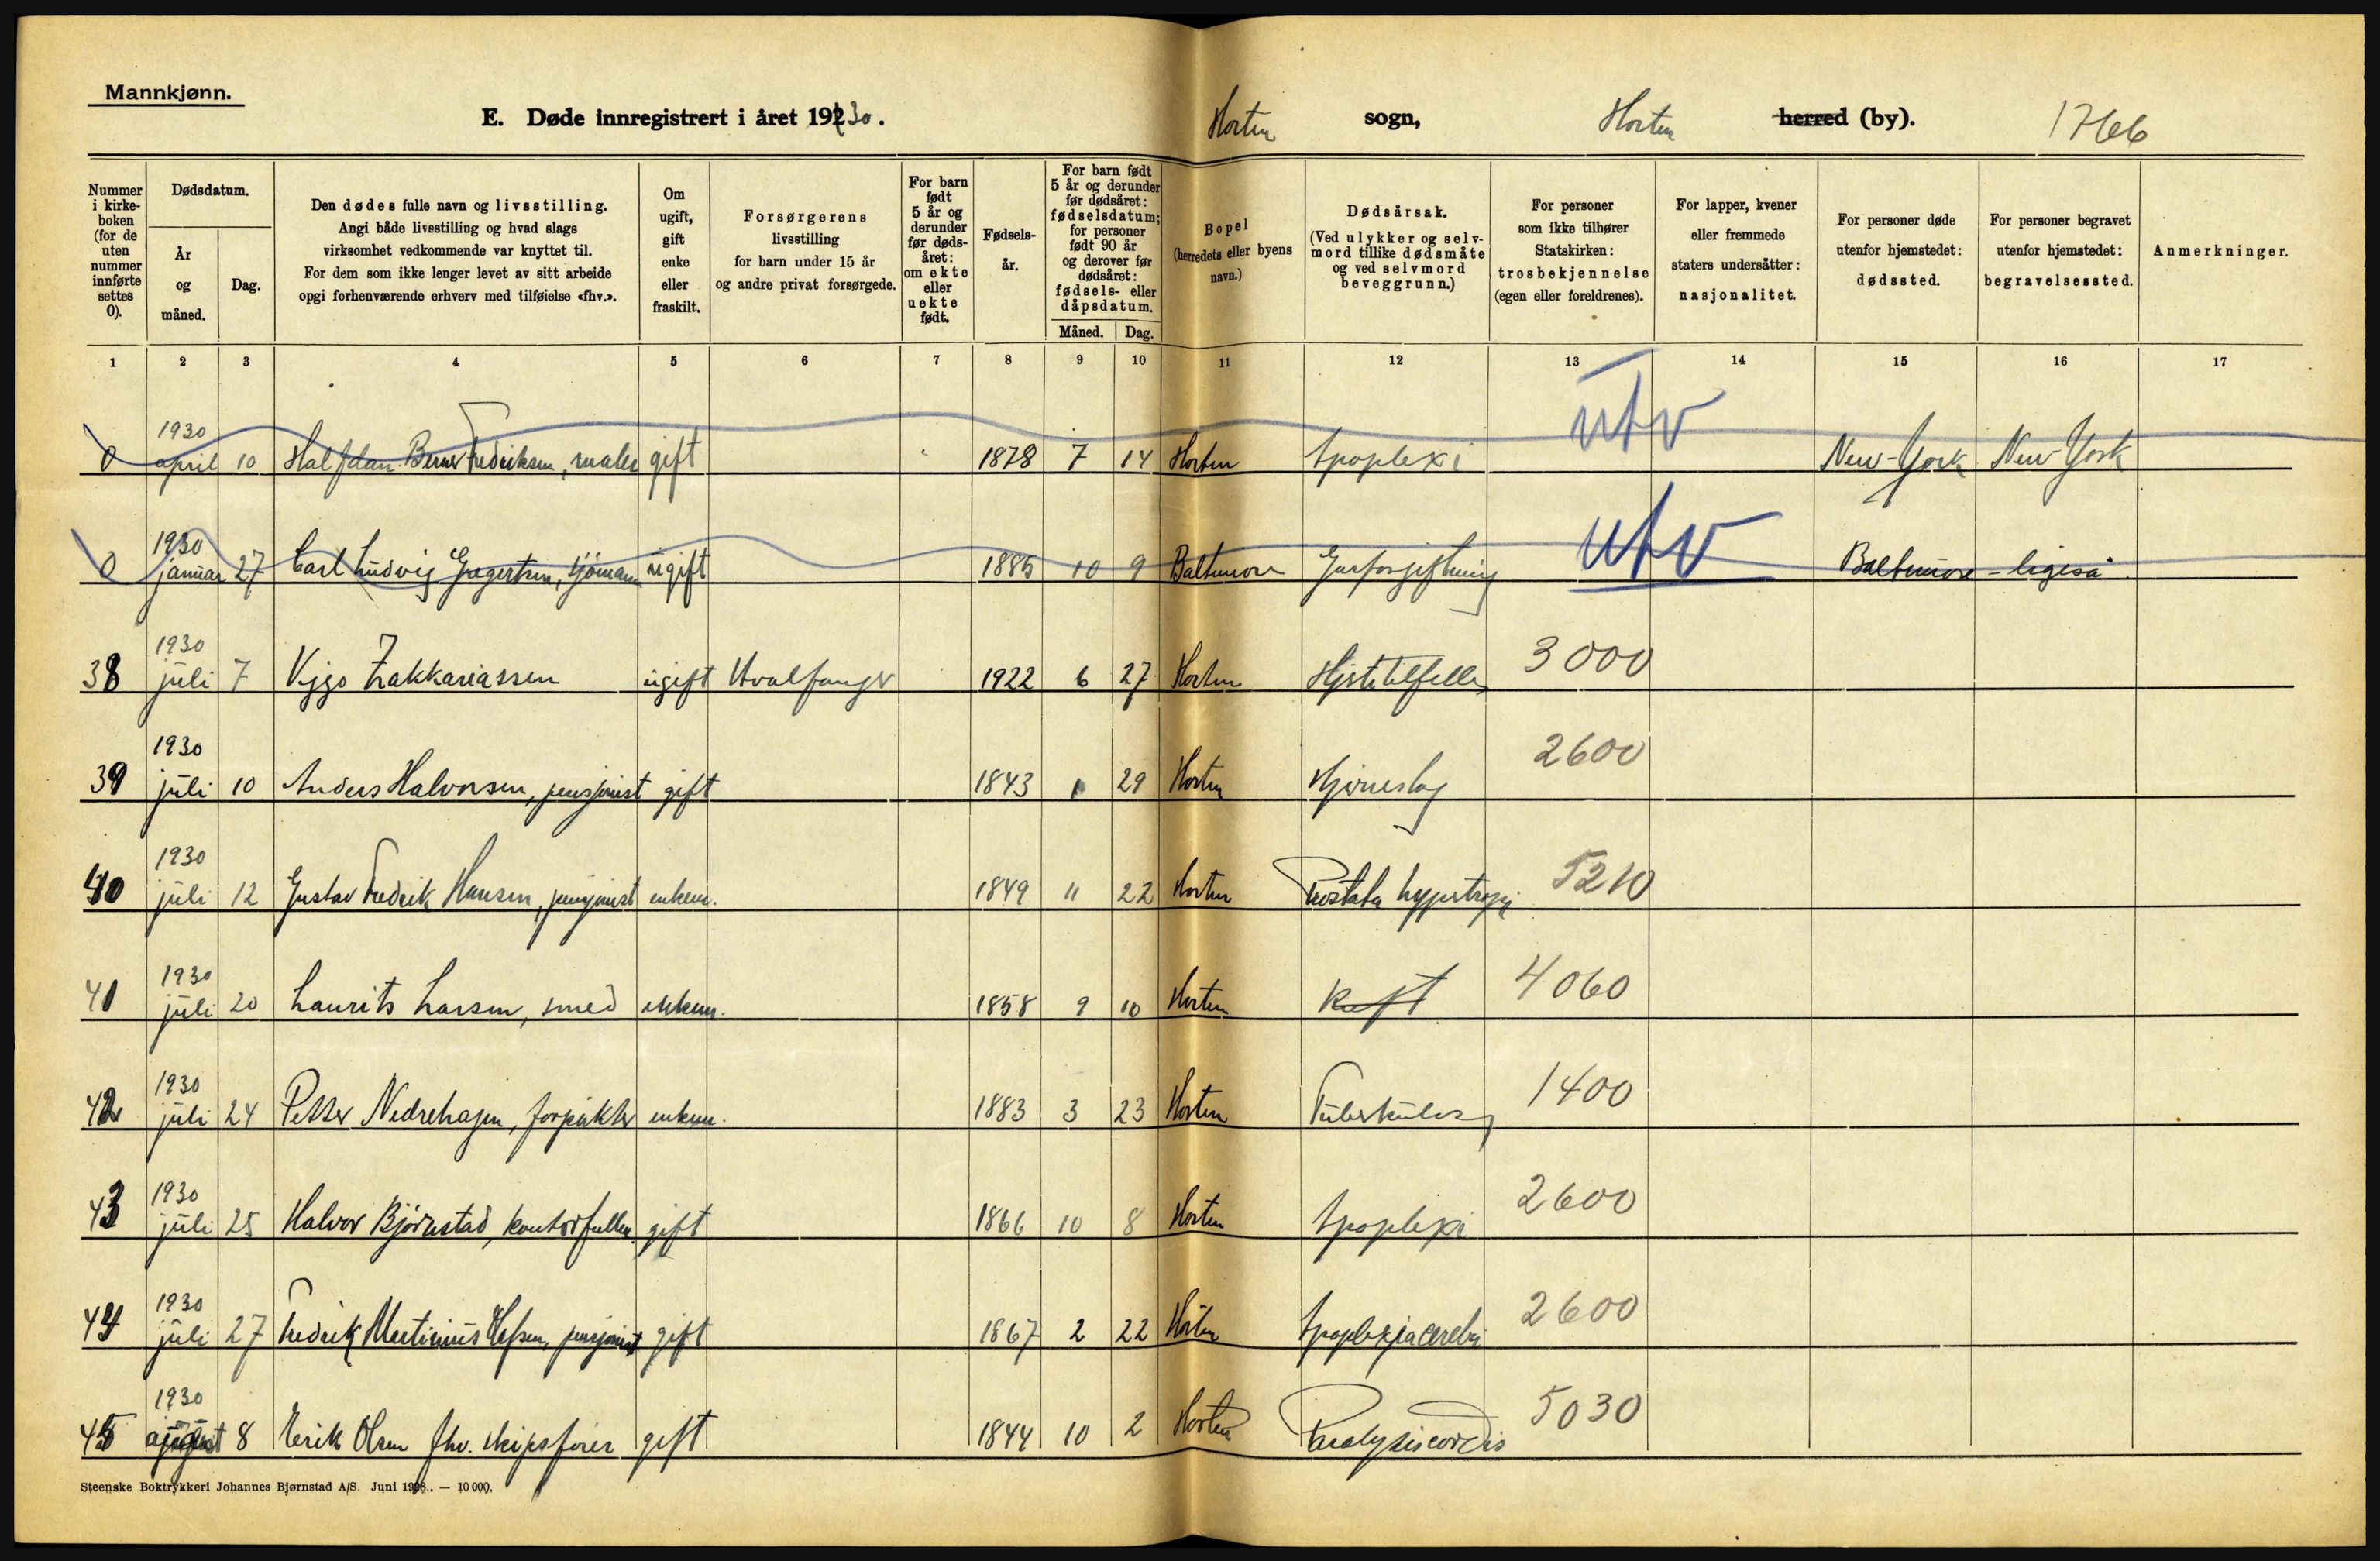 Mannkjønn.
E. Døde innregistrert i året 1930. Horten sogn, Horten herred (by). 1766
Nummer i kirkeboken (for de uten nummer innførte settes 0).
Dødsdatum.
År og måned.
Dag.
Den dødes fulle navn og livsstilling.
Angi både livsstilling og hvad slags
virksomhet vedkommende var knyttet til.
For dem som ikke lenger levet av sitt arbeide
opgi forhenværende erhverv med tilføielse «fhv.».
Om ugift, gift enke eller fraskilt.
Forsørgerens livsstilling for barn under 15 år og andre privat forsørgede.
For barn født 5 år og derunder før dødsåret: om ekte eller uekte født.
Fødselsår.
For barn født 5 år og derunder før dødsåret: fødselsdatum; for personer født 90 år og derover før dødsåret: fødsels- eller dåpsdatum.
Måned. Dag.
Bopel (herredets eller byens navn.)
Dødsårsak. (Ved ulykker og selvmord tillike dødsmåte og ved selvmord beveggrunn.)
For personer som ikke tilhører Statskirken: trosbekjennelse (egen eller foreldrenes).
For lapper, kvener eller fremmede staters undersåtter: nasjonalitet.
For personer døde utenfor hjemstedet: dødssted.
For personer begravet utenfor hjemstedet: begravelsessted.
Anmerkninger.
1 2 3 4 5 6 7 8 9 10 11 12 13 14 15 16 17
0 1930 april 10 Halfdan Berner Fredriksen, maler gift 1878 7 14 Horten Apoplexi utv New-York New York
0 1930 januar 27 Carl Ludvig Gregertsen, sjömann ugift 1885 10 9 Baltimore Gasforgiftning utv Baltimore - ligeså
38 1930 juli 7 Viggo Zakkariassen ugift Hvalfanger 1922 6 27 Horten Hjertetilfelle 3000
39 1930 juli 10 Anders Halvorsen, pensjonist gift 1843 1 29 Horten Hjerneslag 2600
40 1930 juli 12 Gustav Fredrik Hansen, pensjonist enkem. 1849 11 22 Horten Prostata hypertropi 5210
41 1930 juli 20 Laurits Larsen, smed enkem. 1858 9 10 Horten Kreft 4060
42 1930 juli 24 Petter Nedrehagen, forpakter enkem. 1883 3 23 Horten Tuberkulose 1400
43 1930 juli 25 Halvor Bjørnstad, kontorfullm. gift 1866 10 8 Horten Apoplexi 2600
44 1930 juli 27 Fredrik Martinius pensjonist gift 1867 2 22 Horten Apoplexia cerebri 2600
45 1930 august 8 Erik Olsen fhv. skipsfører gift 1844 10 2 Horten Paralysis cordis 5030
Steenske Boktrykkeri Johannes Bjørnstad A/S. Juni 1928. — 10 000.